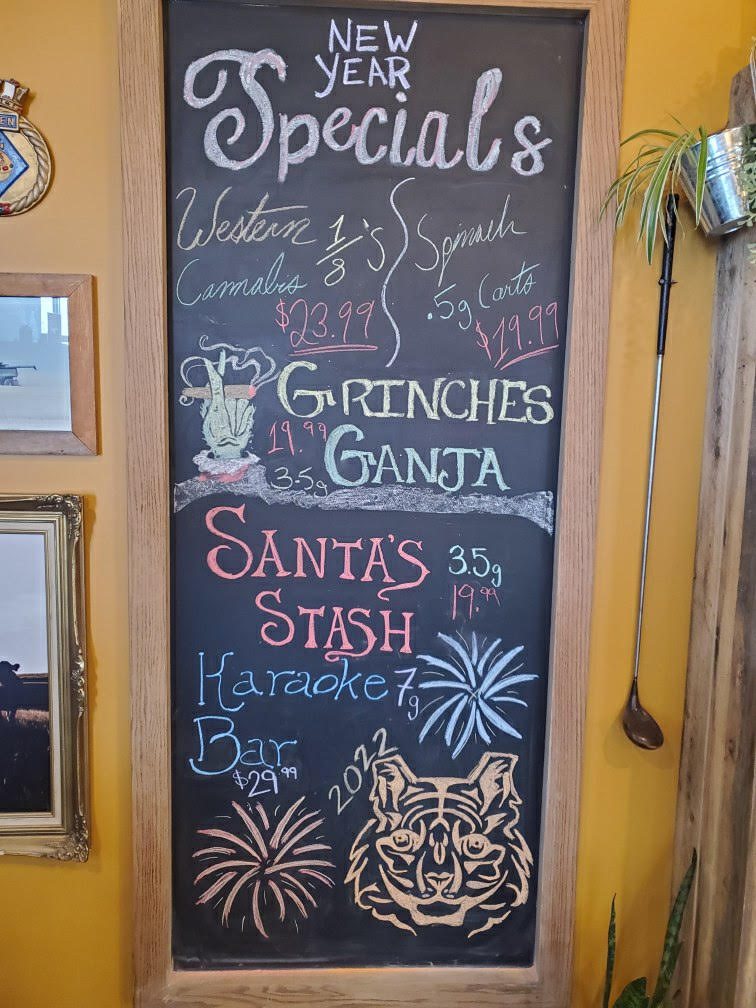 NEW
YEAR
Specials
Western 1/8's
Cannabis
$23.99
Spinach
.5g Carts
$19.99
GRINCHES
19.99 GANJA
3.5g
SANTA'S 3.5g
STASH 19.99
Karaoke 7g
Bar
$29.99
2022